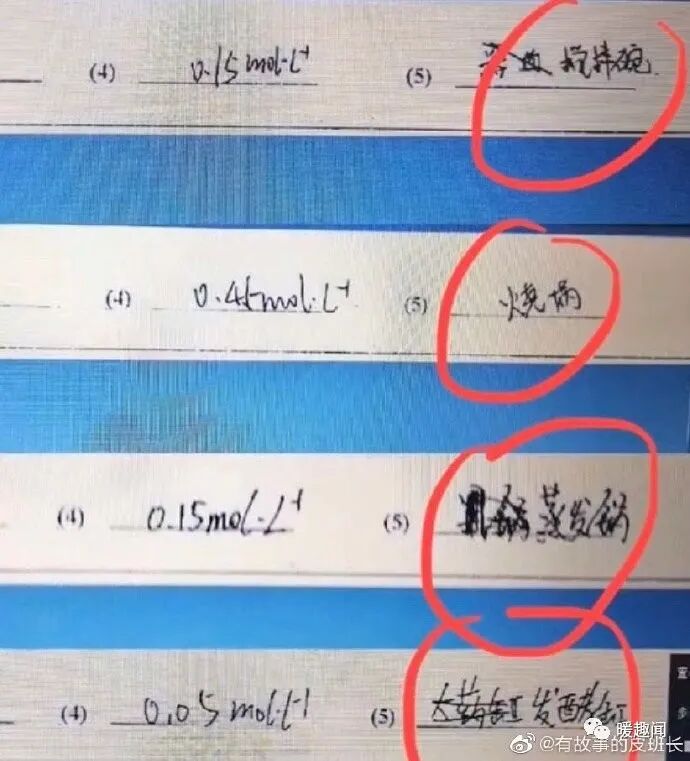 (4) 0.15mol·L⁻¹ (5) 搅拌碗
(4) 0.45mol·L⁻¹ (5) 烧埚
(4) 0.15mol·L⁻¹ (5) 蒸发锅
(4) 0.05mol·L⁻¹ (5) 发酵缸
暖趣闻
@有故事的皮班长